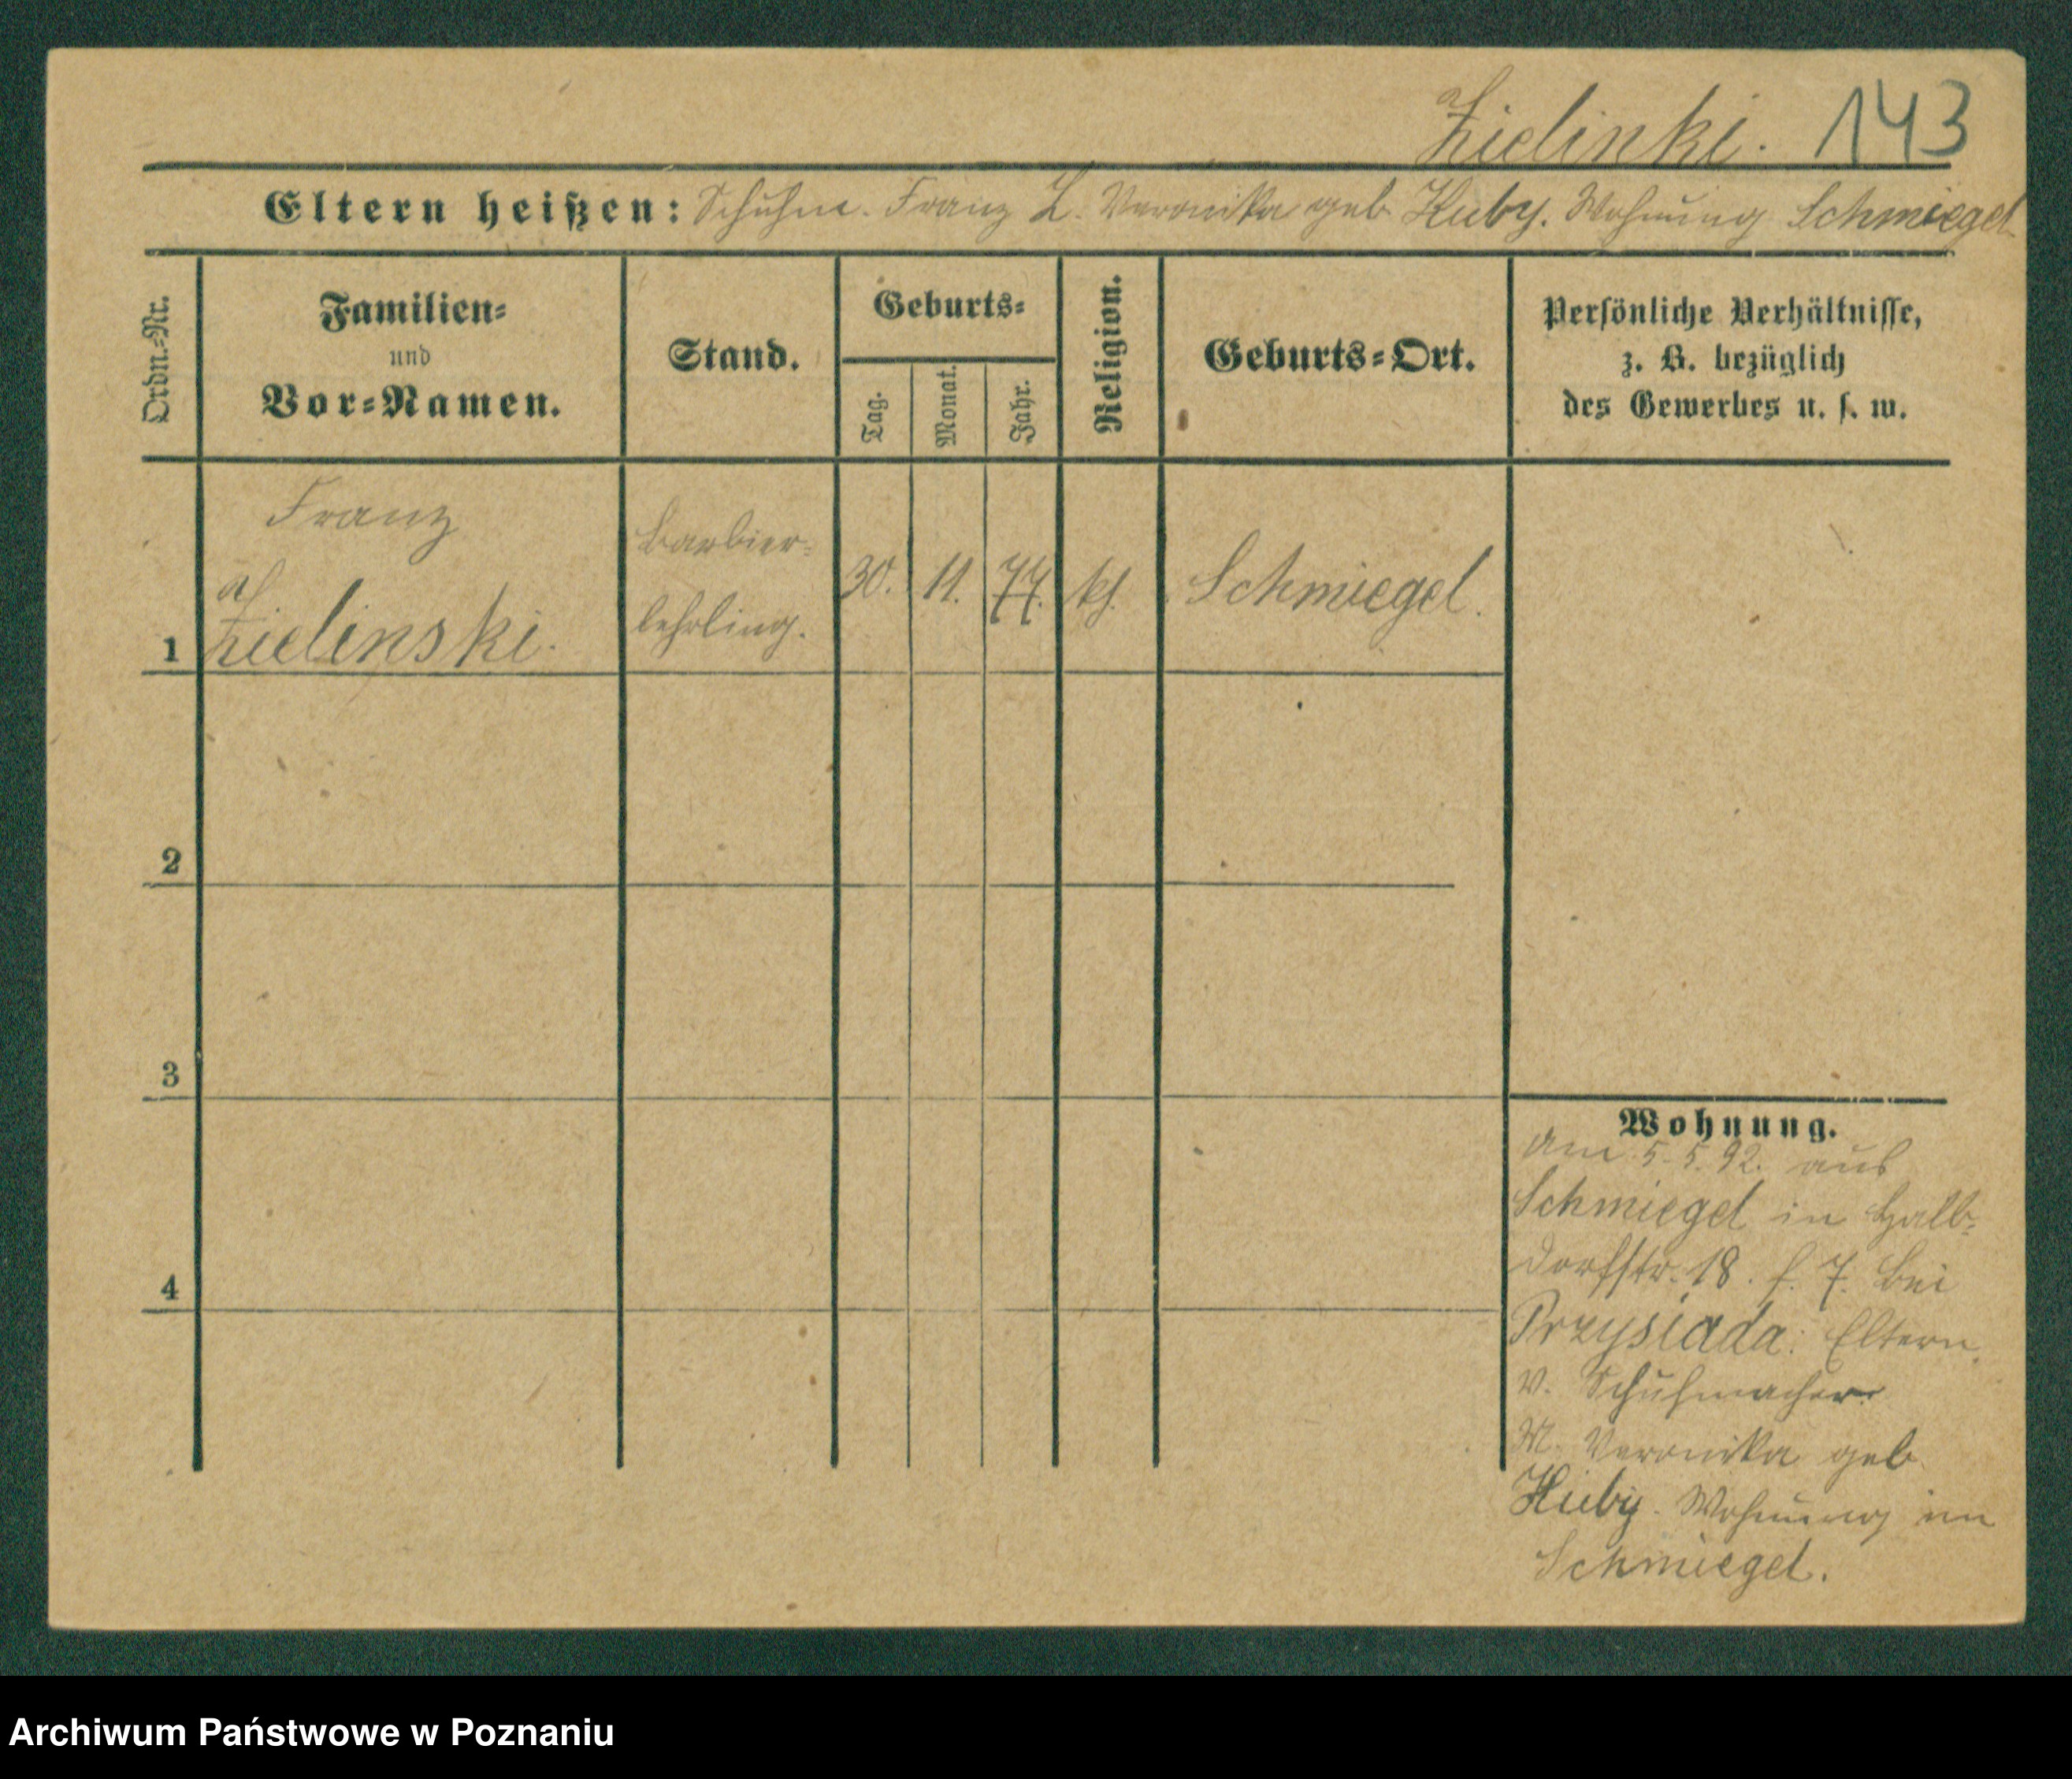 Zielinki. 143
Eltern heißen: Schuhm. Franz Z. Veronika geb Kuby. Wohnung Schmiegel
Ordn.=Nr.
Familien=
und
Vor=Namen.
Stand.
Geburts=
Tag.
Monat.
Jahr.
Religion.
Geburts=Ort.
Persönliche Verhältnisse,
z. B. bezüglich
des Gewerbes u. s. w.
Franz
Zielinski.
Barbier=
lehrling.
30. 11. 77. kf. Schmiegel.
1
2
3
4
Wohnung.
Am 5.5.92. aus
Schmiegel in Halb=
dorfstr. 18. f. 7. bei
Przysiada: Eltern.
V. Schuhmacher
M. Veronika geb.
Kuby. Wohnung in
Schmiegel.
Archiwum Państwowe w Poznaniu